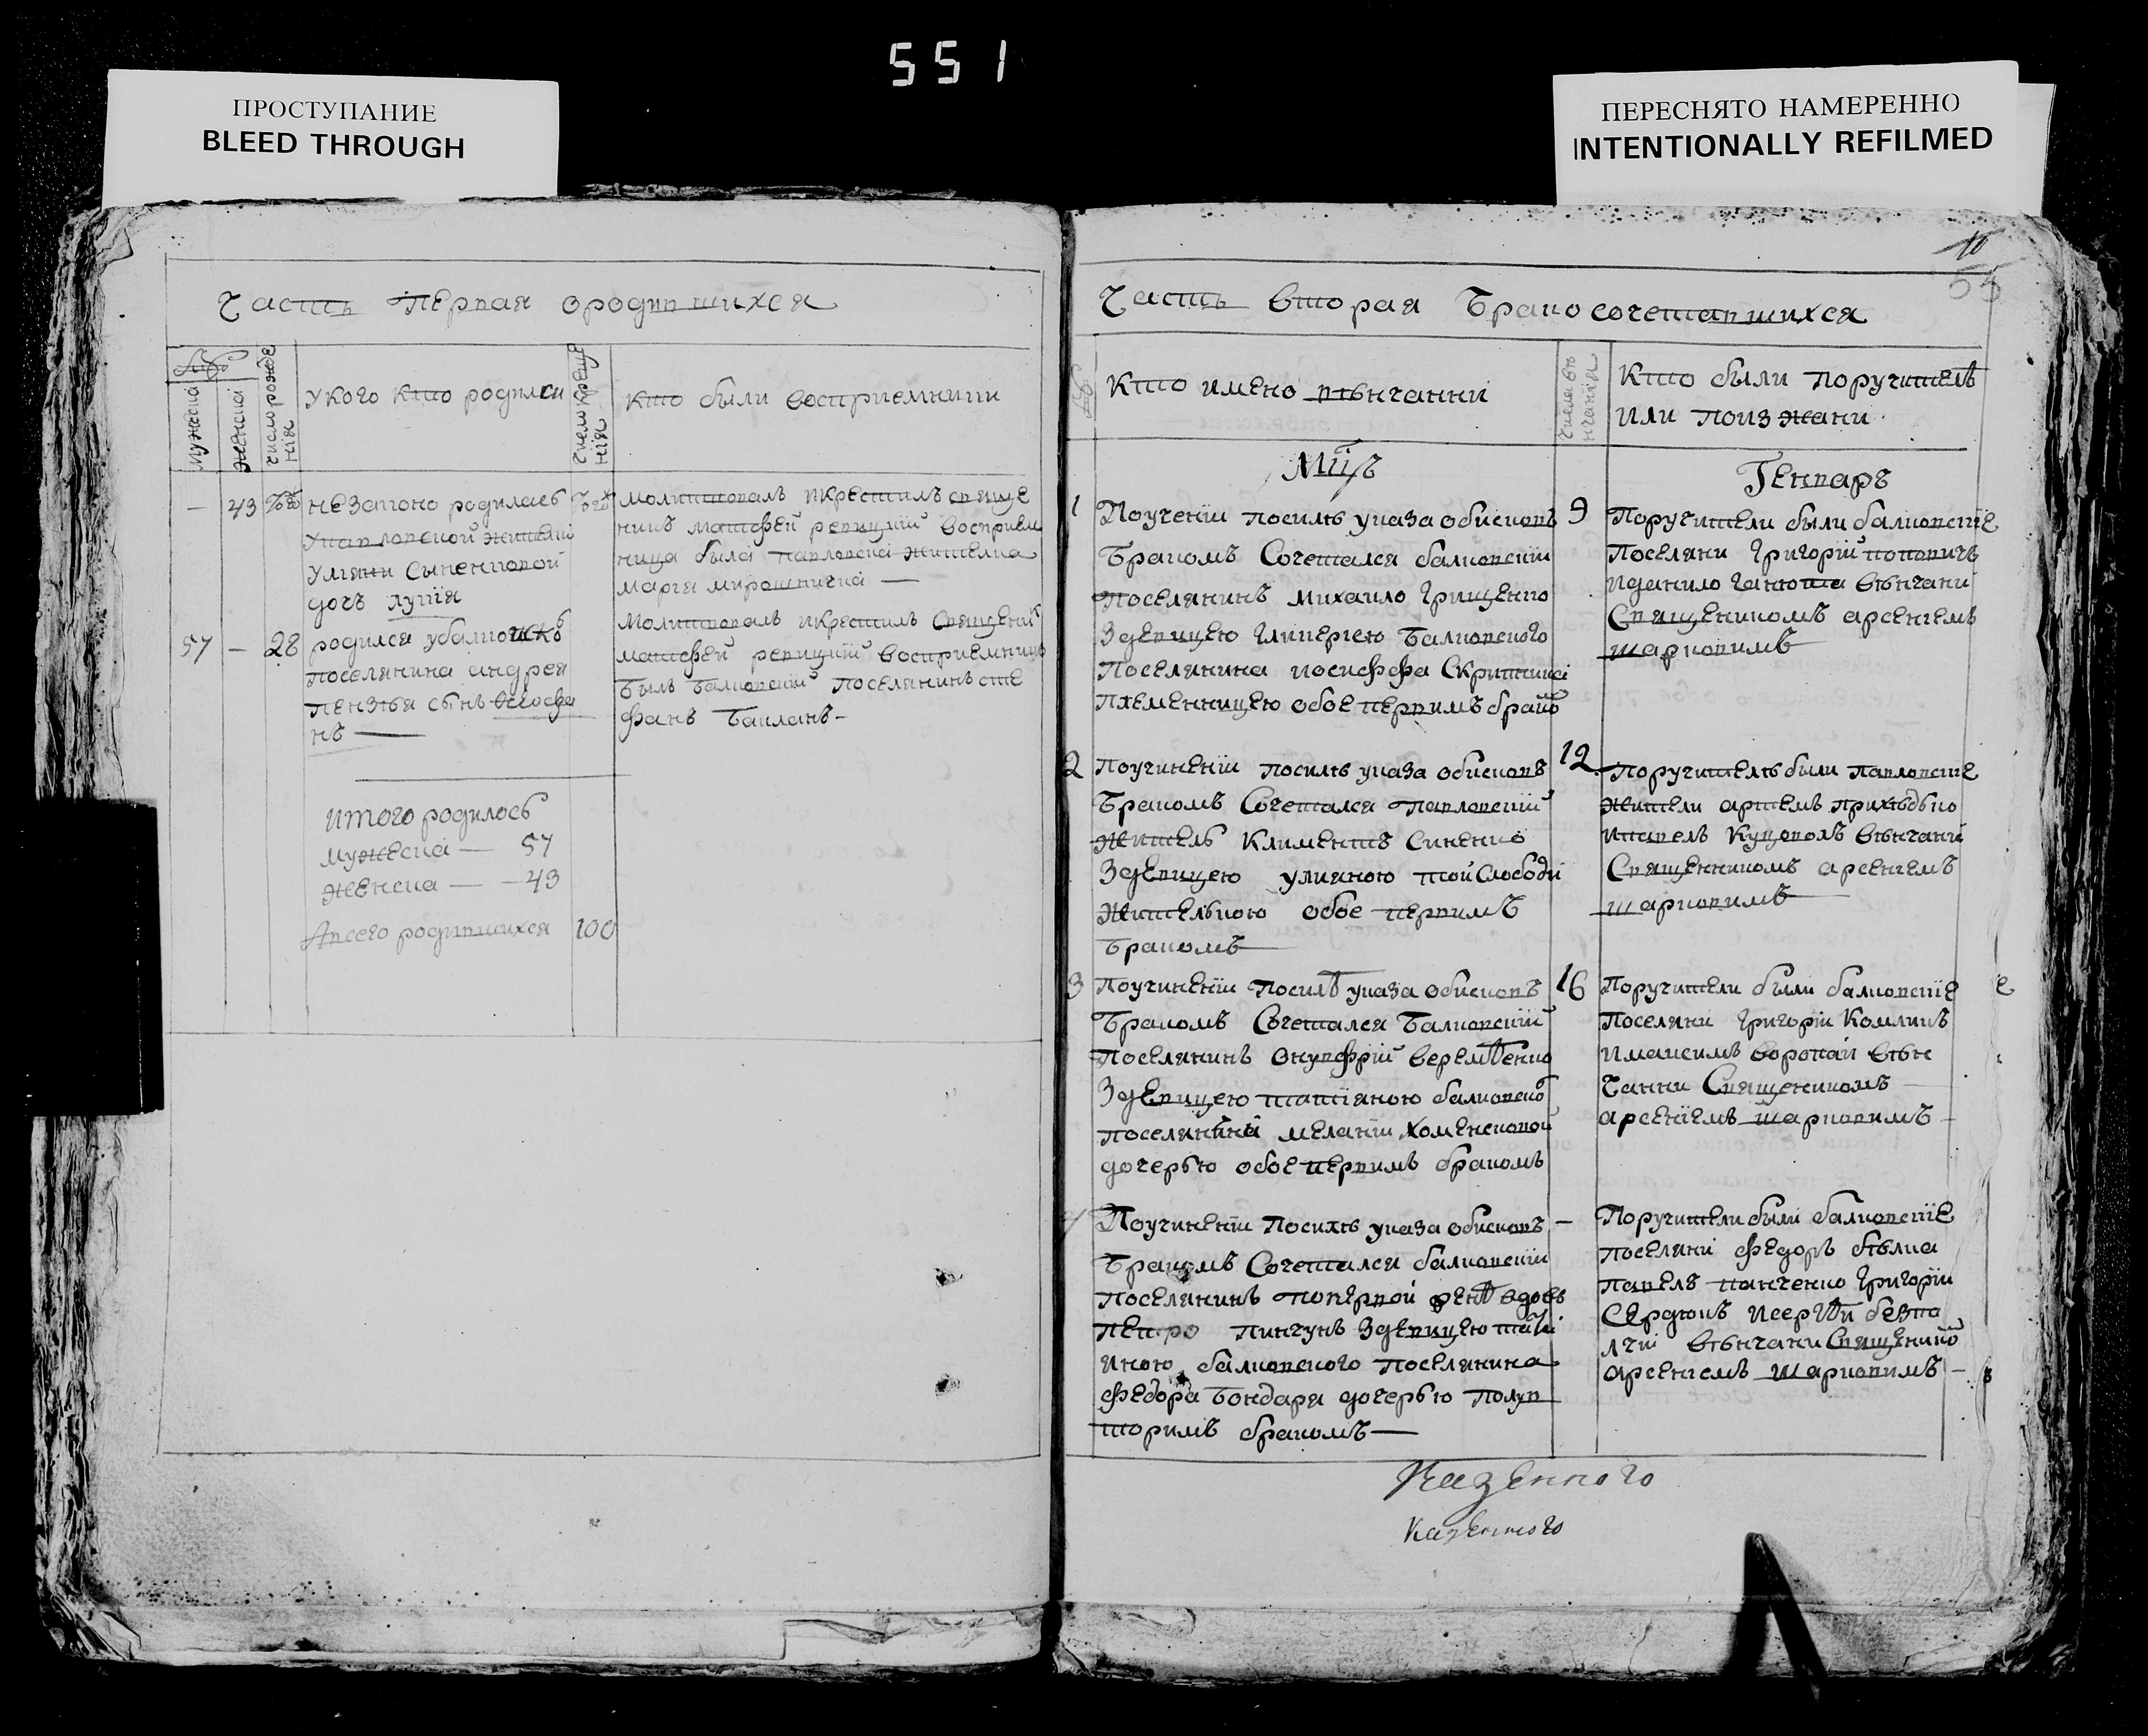 551
ПРОСТУПАНИЕ
BLEED THROUGH
ПЕРЕСНЯТО НАМЕРЕННО
INTENTIONALLY REFILMED
часть первая ородившихся
мужеска
женска
числи рожде
нія
укого кто родился
числи креще
нія
кто были восприемники
— 43
незаконо родилась
Упавловской жителки
Уляни Сыненковой
дочь лукія
молитвовалъ икрестилъ свяще
никъ матфей ревуцкій восприем
ница была павловска жителка
марѳа мирошничка —
57 — 28
родился убалковскъ
поселянина андрея
пензѣя сынъ
нъ —
Молитвовалъ икрестилъ Священик
матфей ревуцкій восприемнико
былъ балковскій поселянинъ сте
фанъ Бакланъ —
итого родилось
мужеска — 57
женска — 43
Авсего родившихся 100
10
55
часть вторая Бракосочетавшихся
кто имено вѣнчанни
числа вѣ
нчания
кто были поручителѣ
или поизжани
Мцъ
Генваръ
1 Поученіи посилѣ указа обисковъ 9
Бракомъ Сочетался балковскій
поселянинъ михаило Грищенко
Здевицею гликериею Балковского
Поселянина иосиффа Скрипника
Племенницею обое первимъ брако
Поручители были балковскіе
Поселяни Григорій поповичъ
иданило ганюта вѣнчани
Священикомъ арсениемъ
шарковимъ
2 Поучиненіи посилѣ указа обисковъ 12
Бракомъ Сочетался павловскій
Житель Климентъ Синенко
Здевицею улияною той Слободи
Жителькою обое первимъ
бракомъ
Поручителѣ были павловскіе
Жители артемъ прихѣдько
ипавелъ Куцоволъ вѣнчани
Священникомъ арсениемъ
шарковимъ
3 Поучиненіи Посилѣ указа обисковъ 16
Бракомъ Сочетался Балковскій
Поселянинъ онуфрій веремѣенко
Здевицею татіяною балковско
поселянина меланіи Хоменсковой
дочерью обое первимъ бракомъ
Поручители были балковскіе
Поселяни Григоріи Комликъ
имаксимъ воропай вѣн
чанни Священикомъ
арсениемъ шарковимъ
4 Поучиненіи Посилѣ указа обисковъ —
Бракомъ Сочетался балковскій
поселянинъ поперной женѣ вдовъ
петро пинчукъ Здевицею тати
яною балковского поселянина
Федора Бондаря дочерью полув
торимъ бракомъ —
Поручители были балковскіе
поселяни Федоръ бѣлка
павелъ панченко Григоріи
Сердюкъ исергѣй безпа
лчіи вѣнчани Священико
арсениемъ шарковимъ —
Казенного
казенного